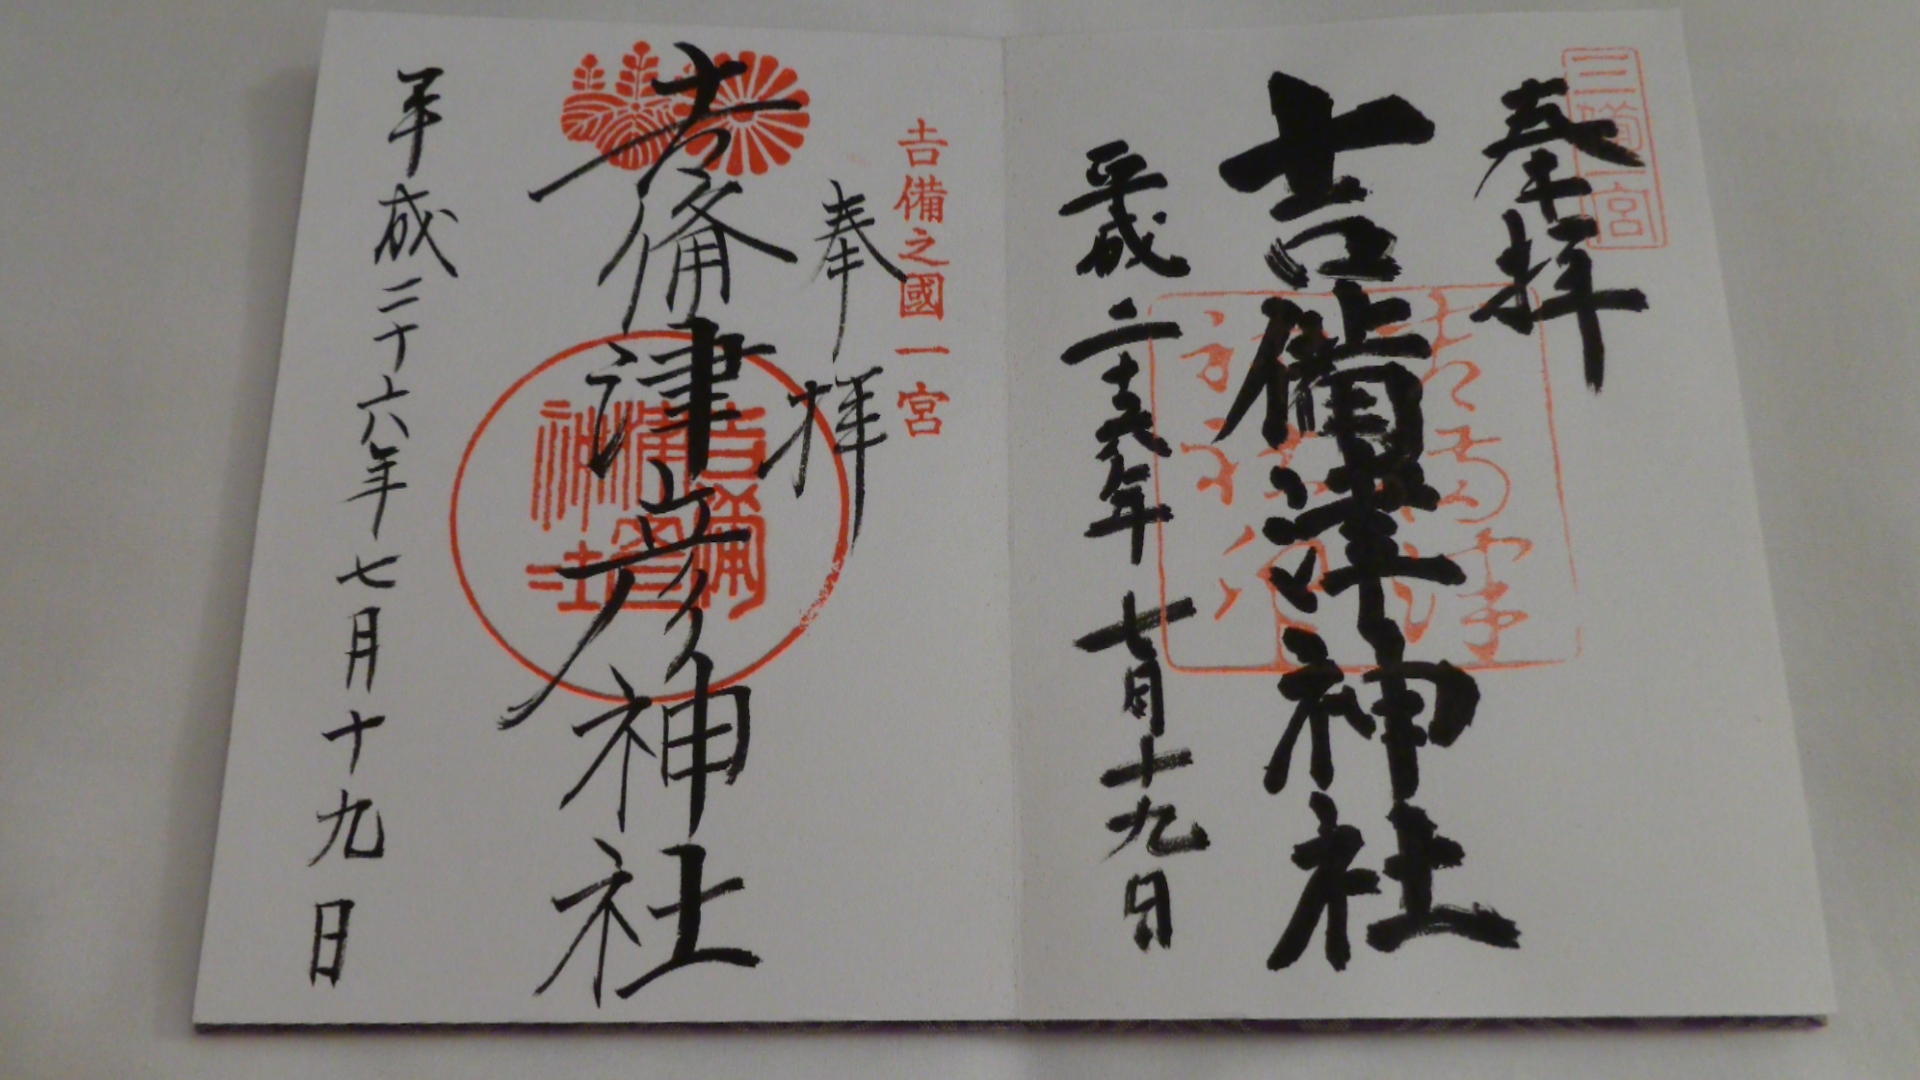 三備一宮
奉拝
吉備津神社
平成二十六年七月十九日
吉備津神社
吉備之國一宮
奉拝
吉備津彦神社
吉備津彦神社
平成二十六年七月十九日